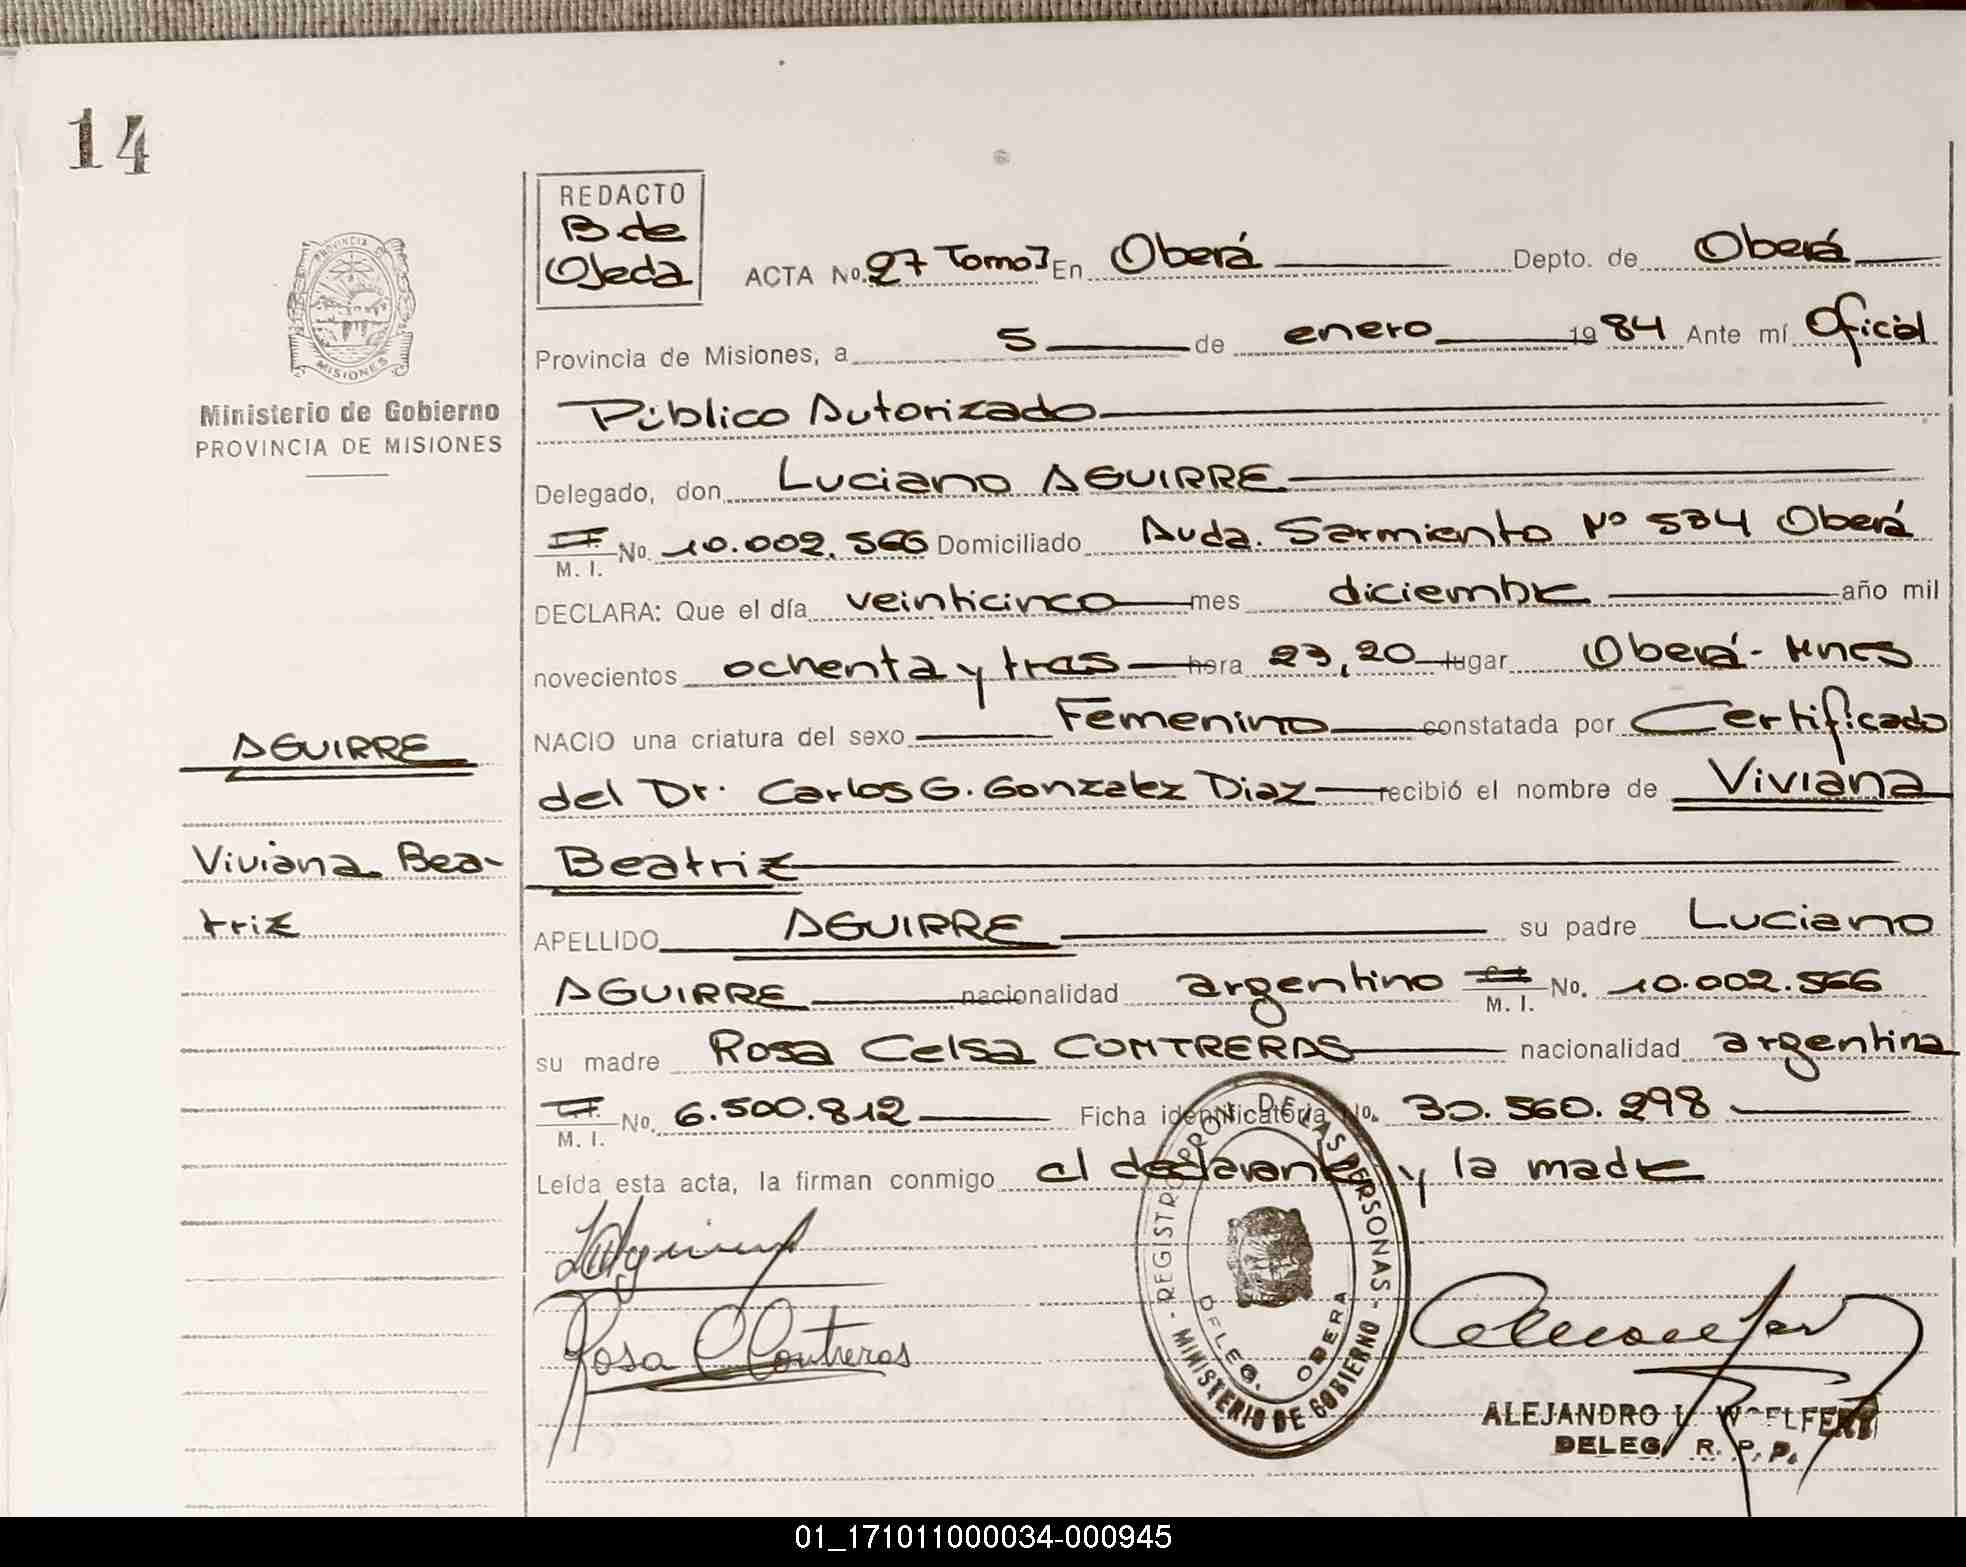 14
REDACTO
B. de
Ojeda
PROVINCIA DE
MISIONES
Ministerio de Gobierno
PROVINCIA DE MISIONES
ACTA No. 27 Tomo I En Oberá Depto. de Oberá
Provincia de Misiones, a 5 de enero 19 84 Ante mí Oficial
Público Autorizado
Delegado, don Luciano AGUIRRE
M. I. No. 10.002.566 Domiciliado Avda. Sarmiento Nº 534 Oberá
DECLARA: Que el día veinticinco mes diciembre año mil
novecientos ochenta y tres hora 23,20 lugar Oberá- Mnes
NACIO una criatura del sexo Femenino constatada por Certificado
del Dr. Carlos G. Gonzalez Diaz recibió el nombre de Viviana
Beatriz
APELLIDO AGUIRRE su padre Luciano
AGUIRRE nacionalidad argentino M. I. No. 10.002.566
su madre Rosa Celsa CONTRERAS nacionalidad argentina
M. I. No. 6.500.812 Ficha identificatoria No. 30.560.298
Leída esta acta, la firman conmigo el declarante y la madre
AGUIRRE
Viviana Bea-
triz
Rosa C Contreras
- REGISTRO PROV. DE LAS PERSONAS -
MINISTERIO DE GOBIERNO
DELEG. OBERA
ALEJANDRO
DELEG. R. P. P.
01_171011000034-000945